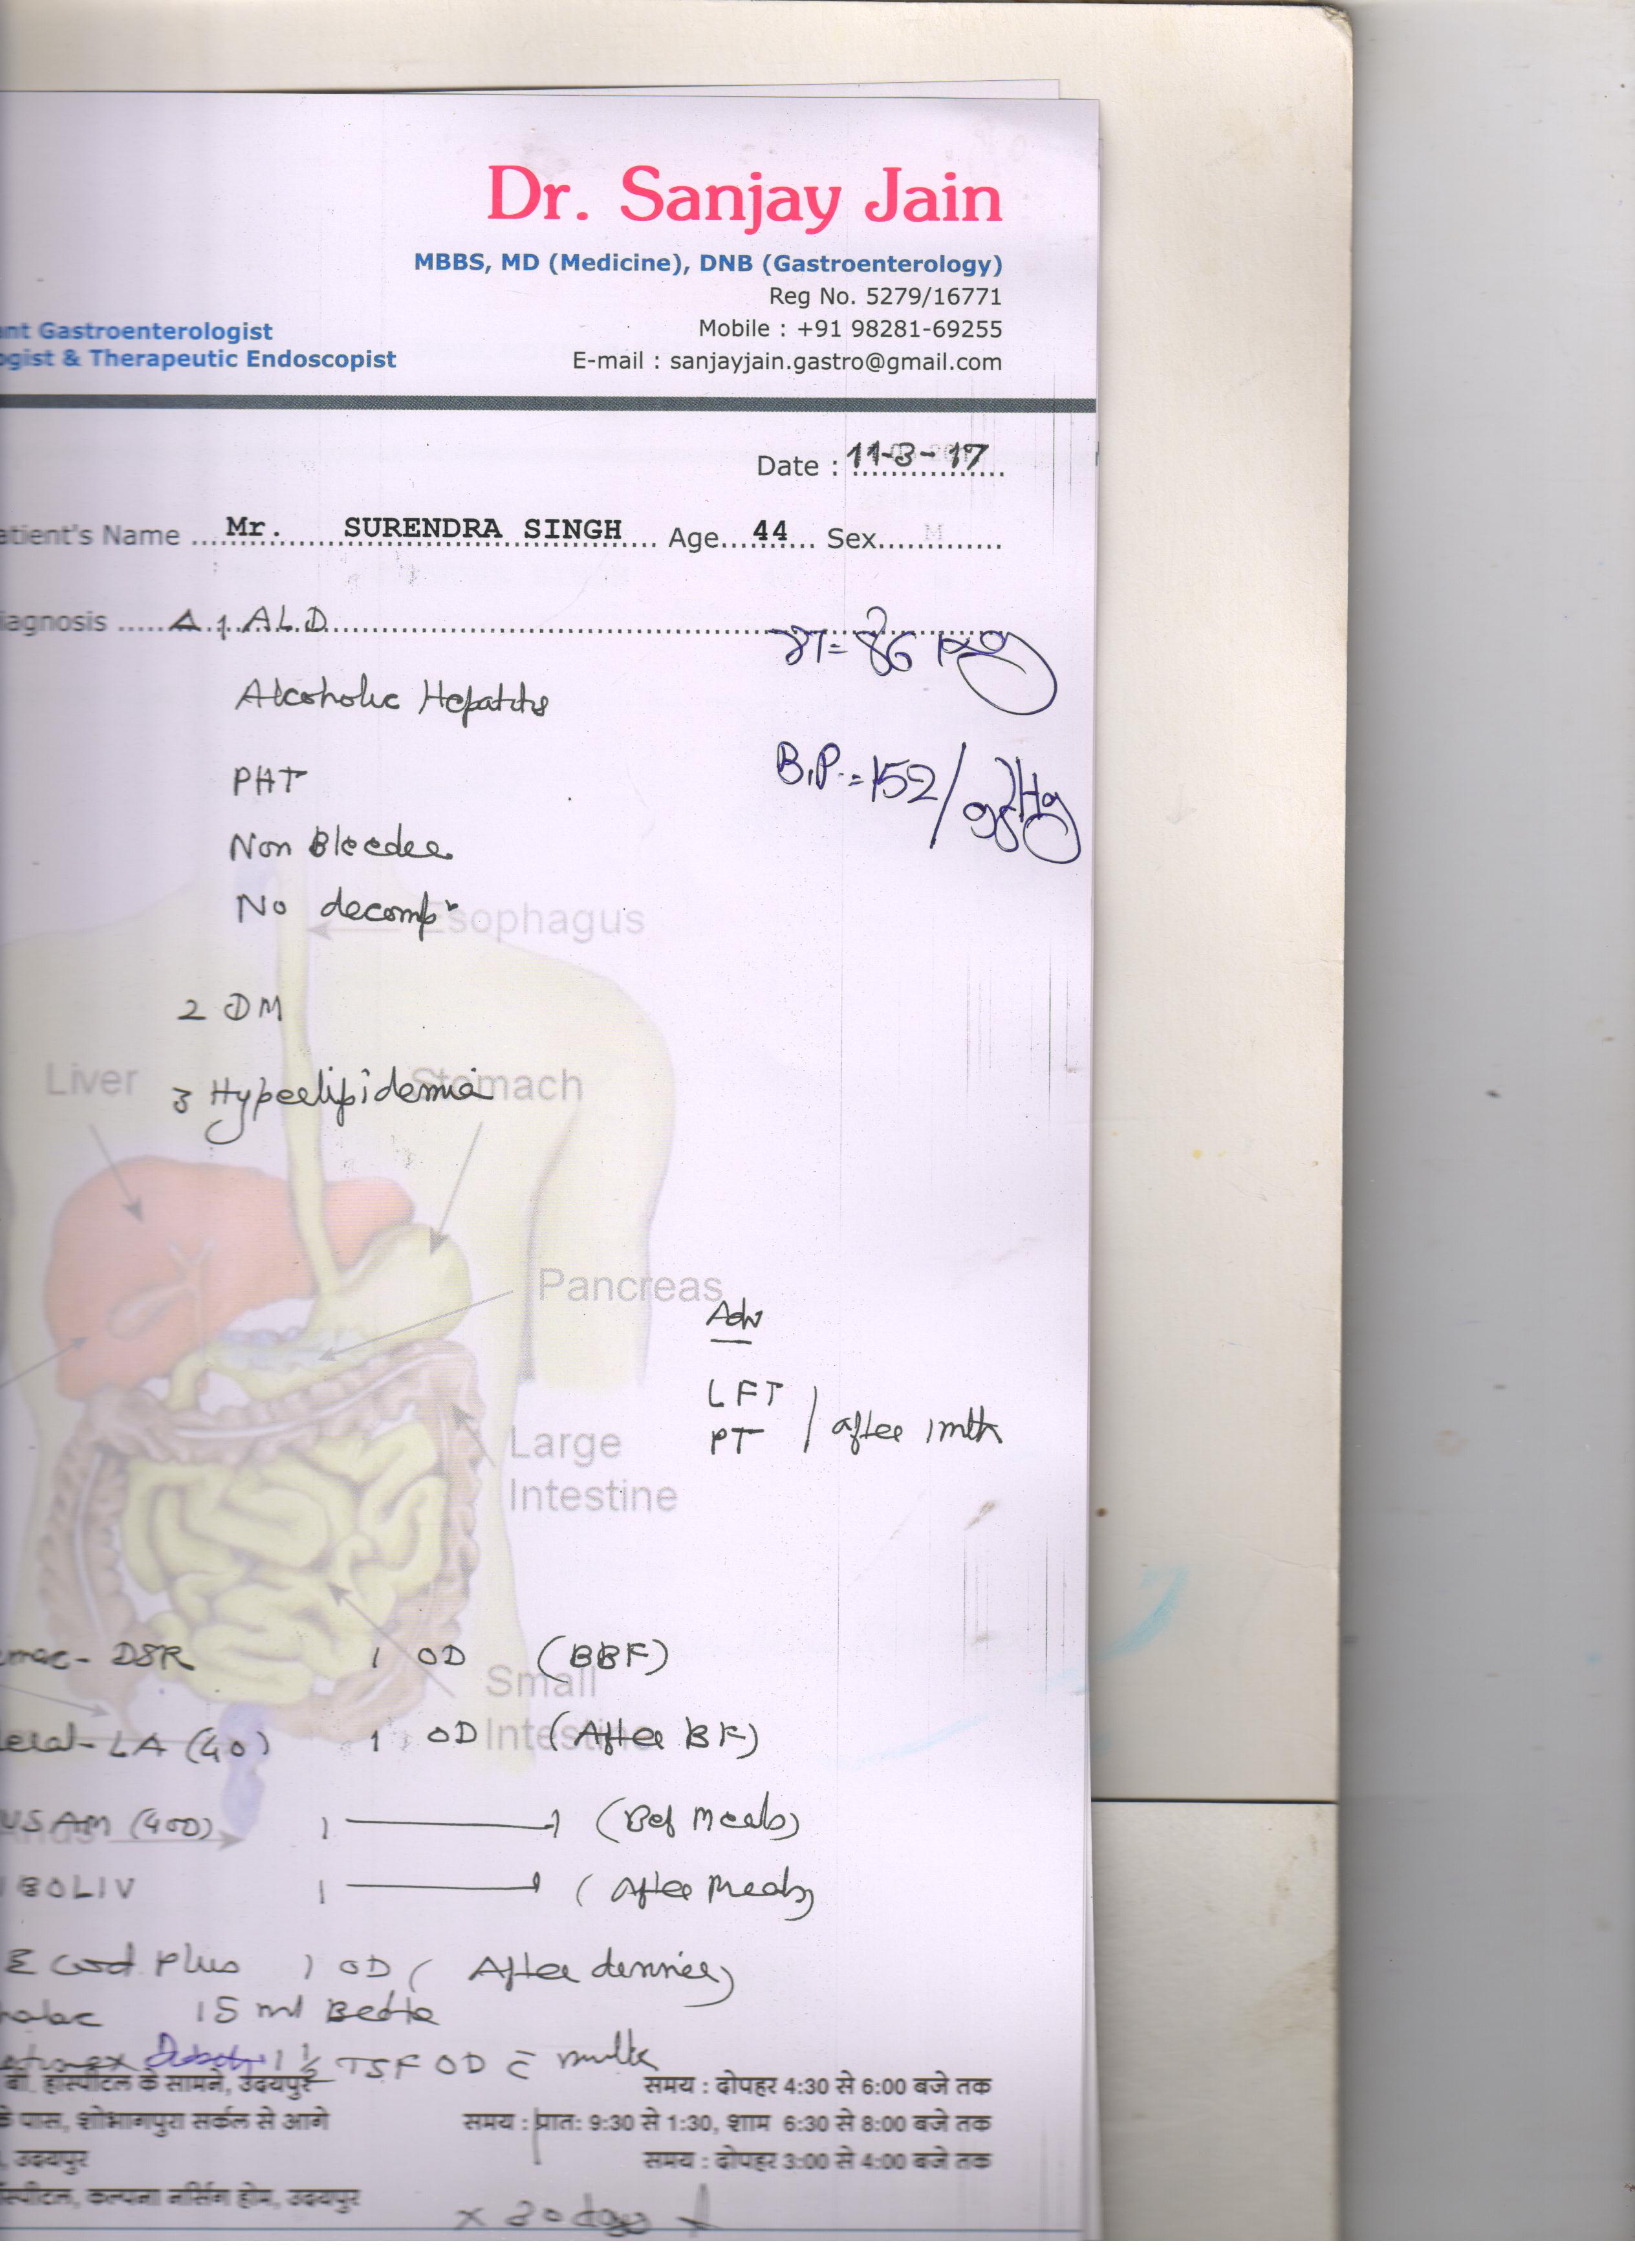 Dr. Sanjay Jain
MBBS, MD (Medicine), DNB (Gastroenterology)
Reg No. 5279/16771
nt Gastroenterologist
Mobile : +91 98281-69255
gist & Therapeutic Endoscopist
E-mail : sanjayjain.gastro@gmail.com
Date : 11-3-17
atient's Name Mr. SURENDRA SINGH Age 44 Sex M
iagnosis Δ 1 ALD
= 86 kg
Alcoholic Hepatitis
PHT
B.P. = 152/98 Hg
Non Bleeder
No decomp
Esophagus
2 DM
Liver
Stomach
3 Hyperlipidemia
Pancreas
Adv
LFT
PT / after 1 mth
Large
Intestine
DSR 1 OD (BBF)
Small
Intestine
LA (40) 1 OD (After BF)
USAM (400) 1 — 1 (Bef Meals)
BOLIV 1 — 1 (After Meals)
E Cod Plus 1 OD (After dinner)
15 ml Bedtime
1 ½ TSF OD c̄ milk
बी. हॉस्पीटल के सामने, उदयपुर समय : दोपहर 4:30 से 6:00 बजे तक
के पास, शोभागपुरा सर्कल से आगे समय : प्रातः 9:30 से 1:30, शाम 6:30 से 8:00 बजे तक
उदयपुर समय : दोपहर 3:00 से 4:00 बजे तक
स्पीटल, कल्पना नर्सिंग होम, उदयपुर
x 30 days